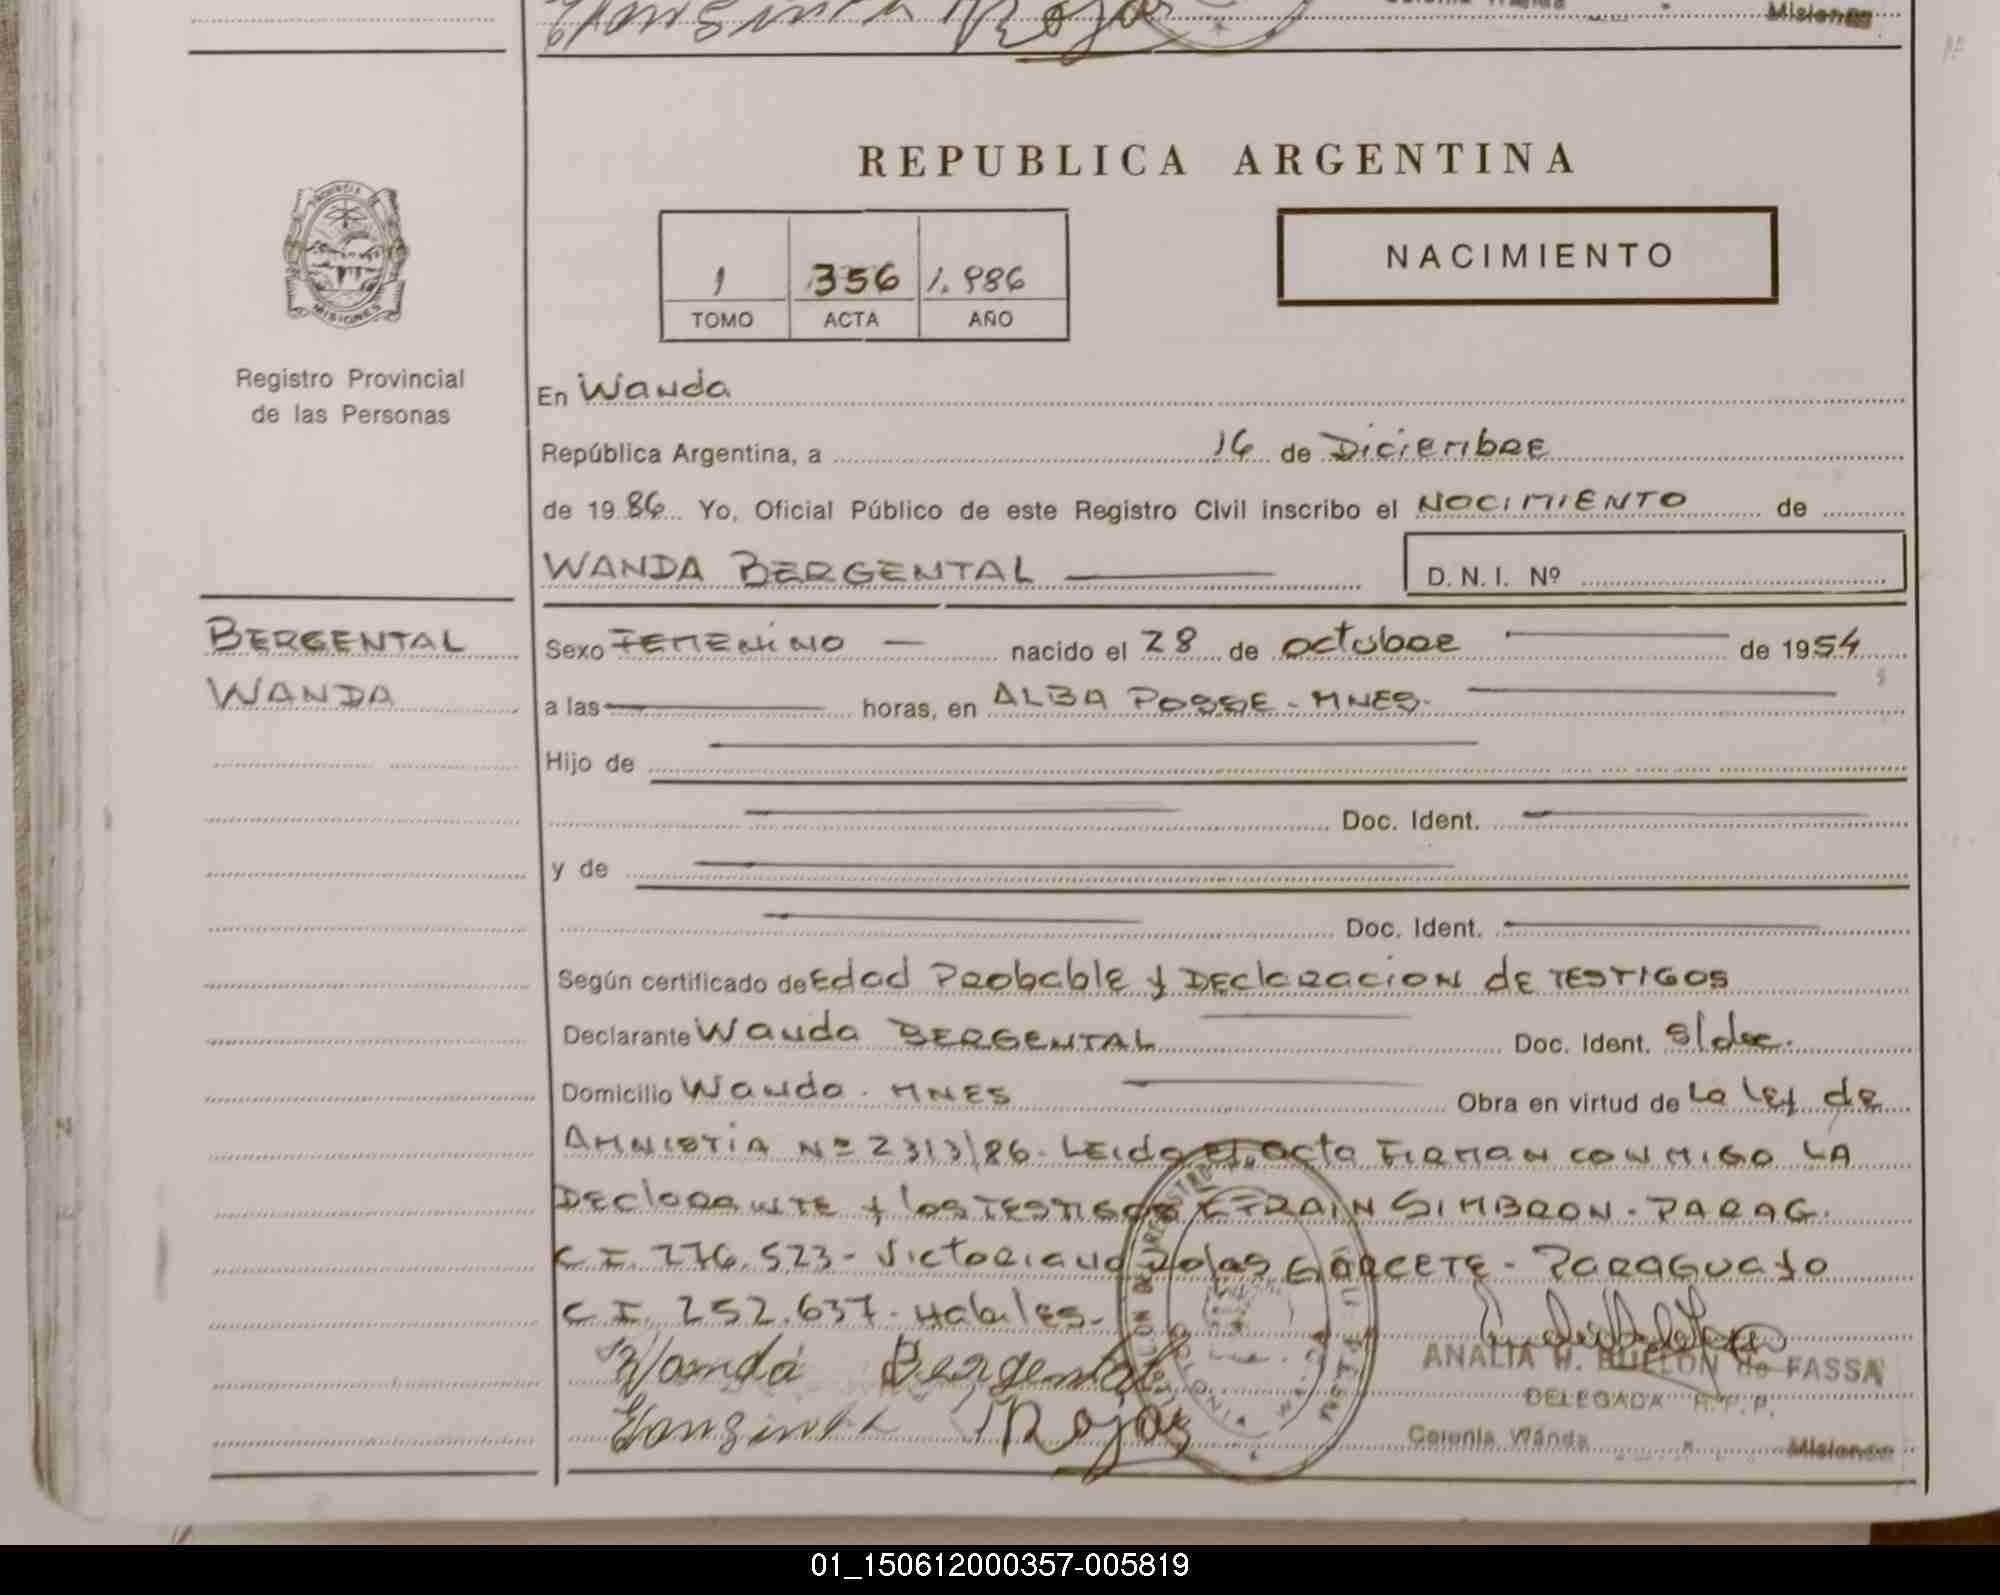 Misiones
REPUBLICA ARGENTINA
NACIMIENTO
1 356 1.986
TOMO ACTA AÑO
PROVINCIA
MISIONES
Registro Provincial
de las Personas
En Wanda
República Argentina, a 16 de Diciembre
de 1986 Yo, Oficial Público de este Registro Civil inscribo el NOCIMIENTO de
WANDA BERGENTAL
D.N.I. Nº
BERGENTAL
WANDA
Sexo FEMENINO nacido el 28 de octubre de 1954
a las horas, en ALBA POSSE - MNES.
Hijo de
Doc. Ident.
y de
Doc. Ident.
Según certificado de Edad Probable y DEclaracion de TESTIGOS
Declarante Wanda BERGENTAL Doc. Ident. s/doc.
Domicilio Wanda - MNES Obra en virtud de La ley de
AMNISTIA Nº 2313/86. Leida el acta FIRMAN CONMIGO LA
DEClaraNTE y los TESTIGOS EFRAIN SIMBRON - PARAG.
C I. 776.523 - Victoriano Rojas GARCETE - PARAGUAYO
C I. 252.637 - Habiles.
Wanda Bergental
Rojas
ANALIA H. BULLON de FASSA
DELEGADA R.P.P.
Colonia Wanda Misiones
01_150612000357-005819